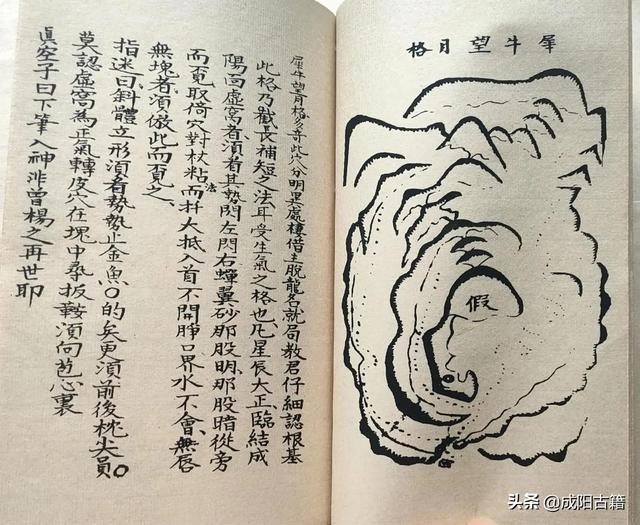 犀牛望月格
假
犀牛望月格多奇此穴分明異處棲借主脫龍名就局教君仔細認根基
此格乃截長補短之法耳受生氣之格也凡星辰大正臨結成
陽向虛窩者須看其勢閃左閃右蟬翼砂那股明那股暗從旁
而覔取倚穴對杖粘法而扦大抵入首不開脖口界水不會無唇
無塊者須倣此而覔之、
指迷曰斜體立形須看勢勢止金魚○的矣更須前後枕尖員○
莫認虛窩為正氣轉皮穴在塊中尋扳鞍須向苞心裏
真空子曰下筆入神非曾楊之再世耶
头条 @成阳古籍